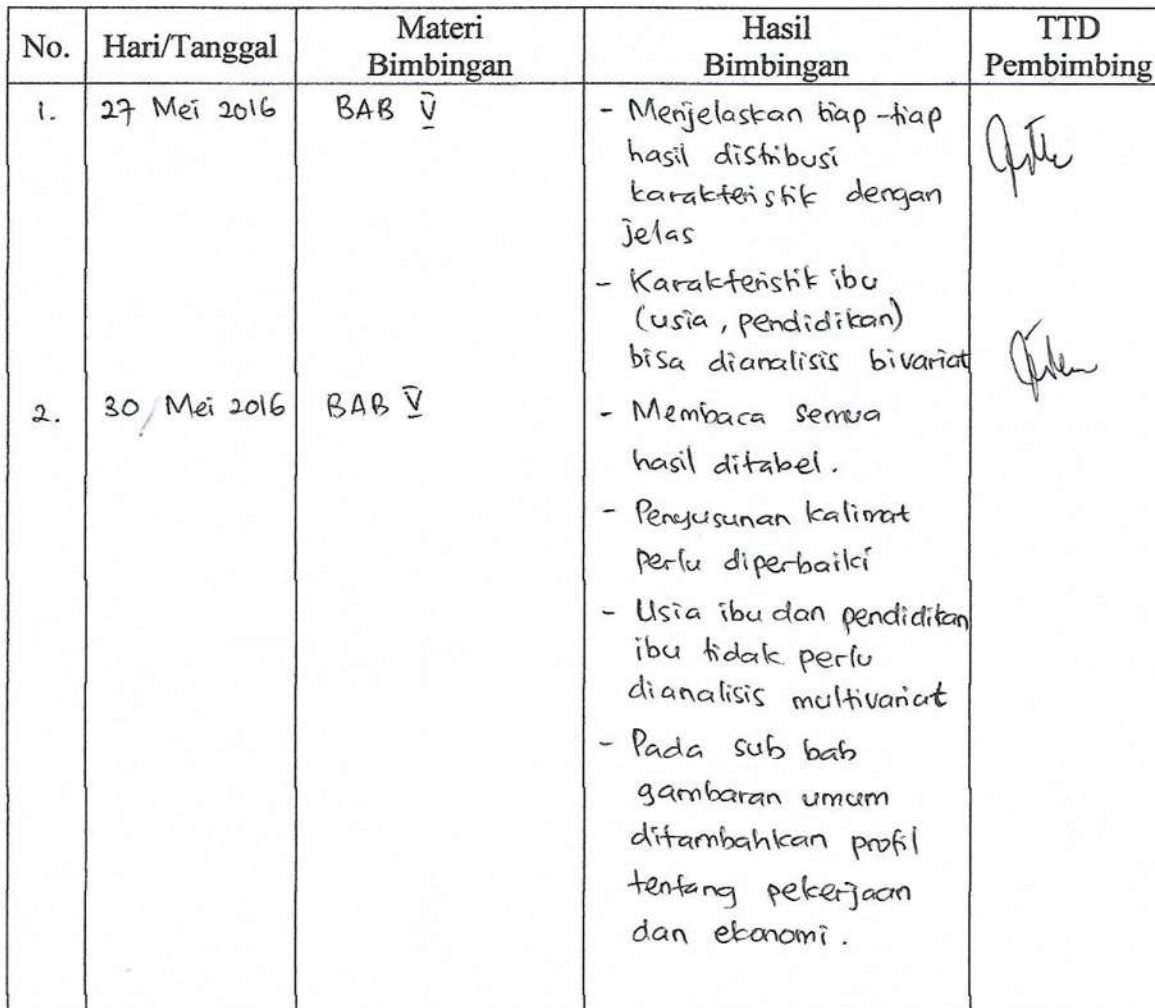 No. Hari/Tanggal Materi Bimbingan Hasil Bimbingan TTD Pembimbing
1. 27 Mei 2016 BAB V - Menjelaskan tiap-tiap
hasil distribusi
karakteristik dengan
jelas
- Karakteristik ibu
(usia, pendidikan)
bisa dianalisis bivariat
2. 30 Mei 2016 BAB V - Membaca semua
hasil ditabel.
- Penyusunan kalimat
perlu diperbaiki
- Usia ibu dan pendidikan
ibu tidak perlu
dianalisis multivariat
- Pada sub bab
gambaran umum
ditambahkan profil
tentang pekerjaan
dan ekonomi.